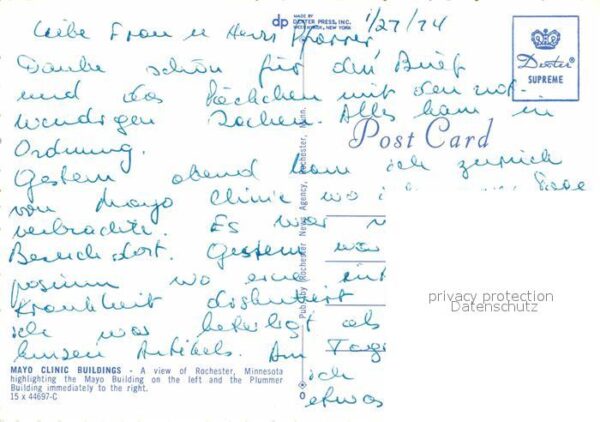 MADE BY
dp DEXTER PRESS, INC.
WEST NYACK, NEW YORK
1/27/74
Liebe Frau u Herr
Danke schön für den Brief
und das Päckchen mit den not-
wendigen Sachen. Alles kam in
Ordnung.
Gestern abend kam ich zurück
von Mayo Clinic wo
verbrachte. Es war
Besuch dort. Gestern war
posium wo eine
Krankheit diskutiert
ich war beteiligt als
kurzen Artikels. Am
ich
etwas
Dexter®
SUPREME
Post Card
Pub. by Rochester News Agency, Rochester, Minn.
privacy protection
Datenschutz
MAYO CLINIC BUILDINGS - A view of Rochester, Minnesota
highlighting the Mayo Building on the left and the Plummer
Building immediately to the right.
15 x 44697-C